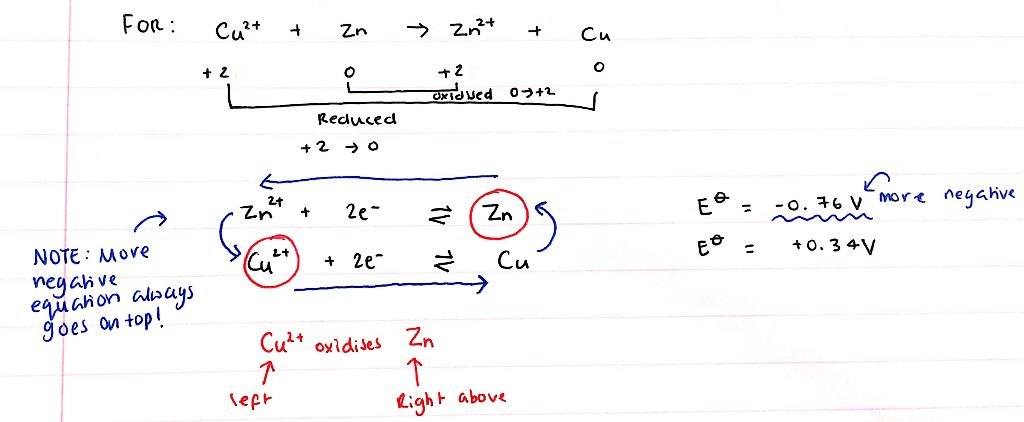 FOR: Cu²⁺ + Zn → Zn²⁺ + Cu
+2 0 +2 0
oxidised 0→+2
Reduced
+2 → 0
Zn²⁺ + 2e⁻ ⇌ Zn
E⦵ = -0.76 V more negative
Cu²⁺ + 2e⁻ ⇌ Cu
E⦵ = +0.34V
NOTE: More
negative
equation always
goes on top!
Cu²⁺ oxidises Zn
left
Right above